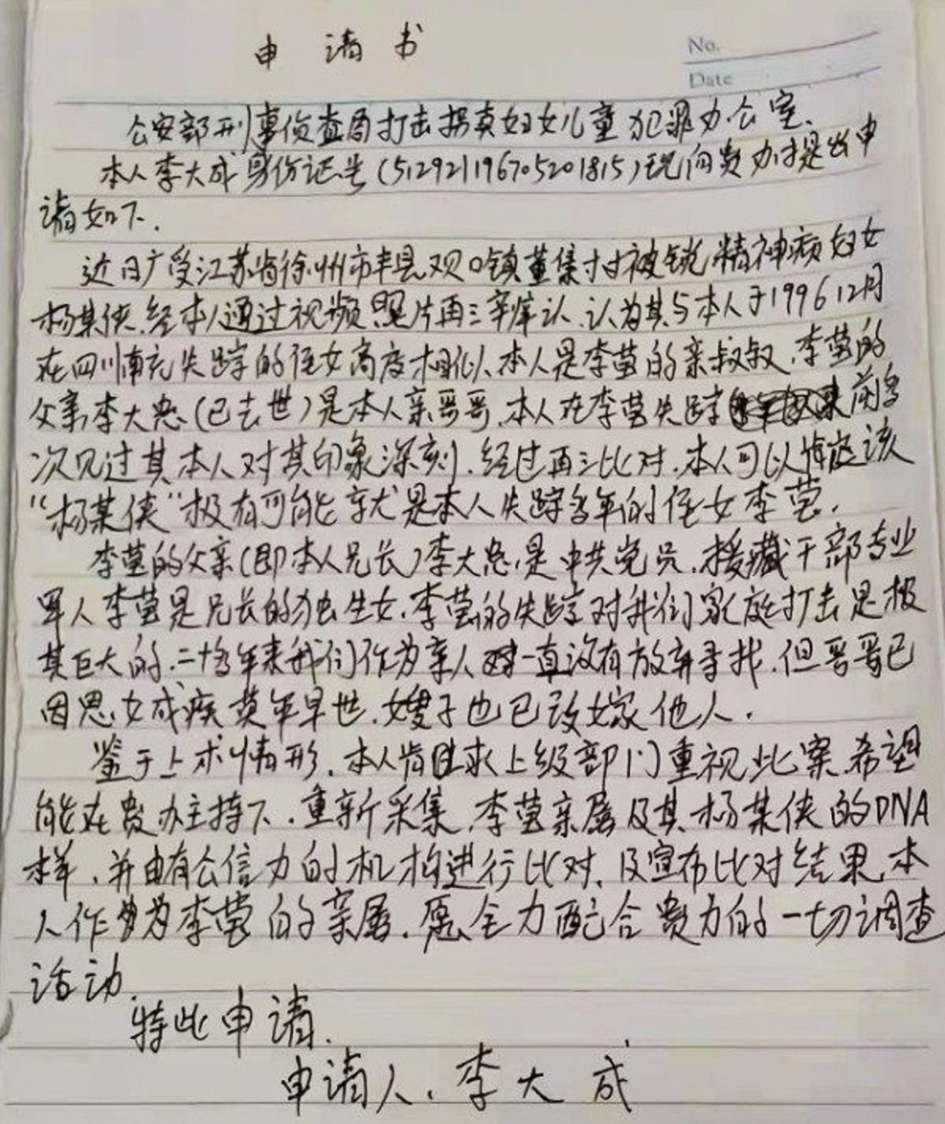 申请书
No.
Date
公安部刑事侦查局打击拐卖妇女儿童犯罪办公室.
本人李大成身份证号(512921196705201815)现向贵办提出申
请如下.
近日广受江苏省徐州市丰县欢口镇董集村被锁精神病妇女
杨某侠.经本人通过视频照片再三辨认.认为其与本人于1996 12月
在四川南充失踪的侄女高度相似.本人是李莹的亲叔叔.李莹的
父亲李大忠(已去世)是本人亲哥哥.本人在李莹失踪前多
次见过其本人对其印象深刻.经过再三比对.本人可以肯定该
“杨某侠”极有可能就是本人失踪多年的侄女李莹.
李莹的父亲(即本人兄长)李大忠是中共党员.援藏干部专业
军人李莹是兄长的独生女.李莹的失踪对我们家庭打击是极
其巨大的.二十多年来我们作为亲人一直没有放弃寻找.但哥哥已
因思女成疾莫年早世.嫂子也已改嫁他人.
鉴于上术情形.本人肯且求上级部门重视此案.希望
能在贵办主持下.重新采集.李莹亲属及其杨某侠的DNA
样.并由有公信力的机构进行比对.及宣布比对结果.本
人作为李莹的亲属.愿全力配合贵力的一切调查
活动.
特此申请.
申请人.李大成